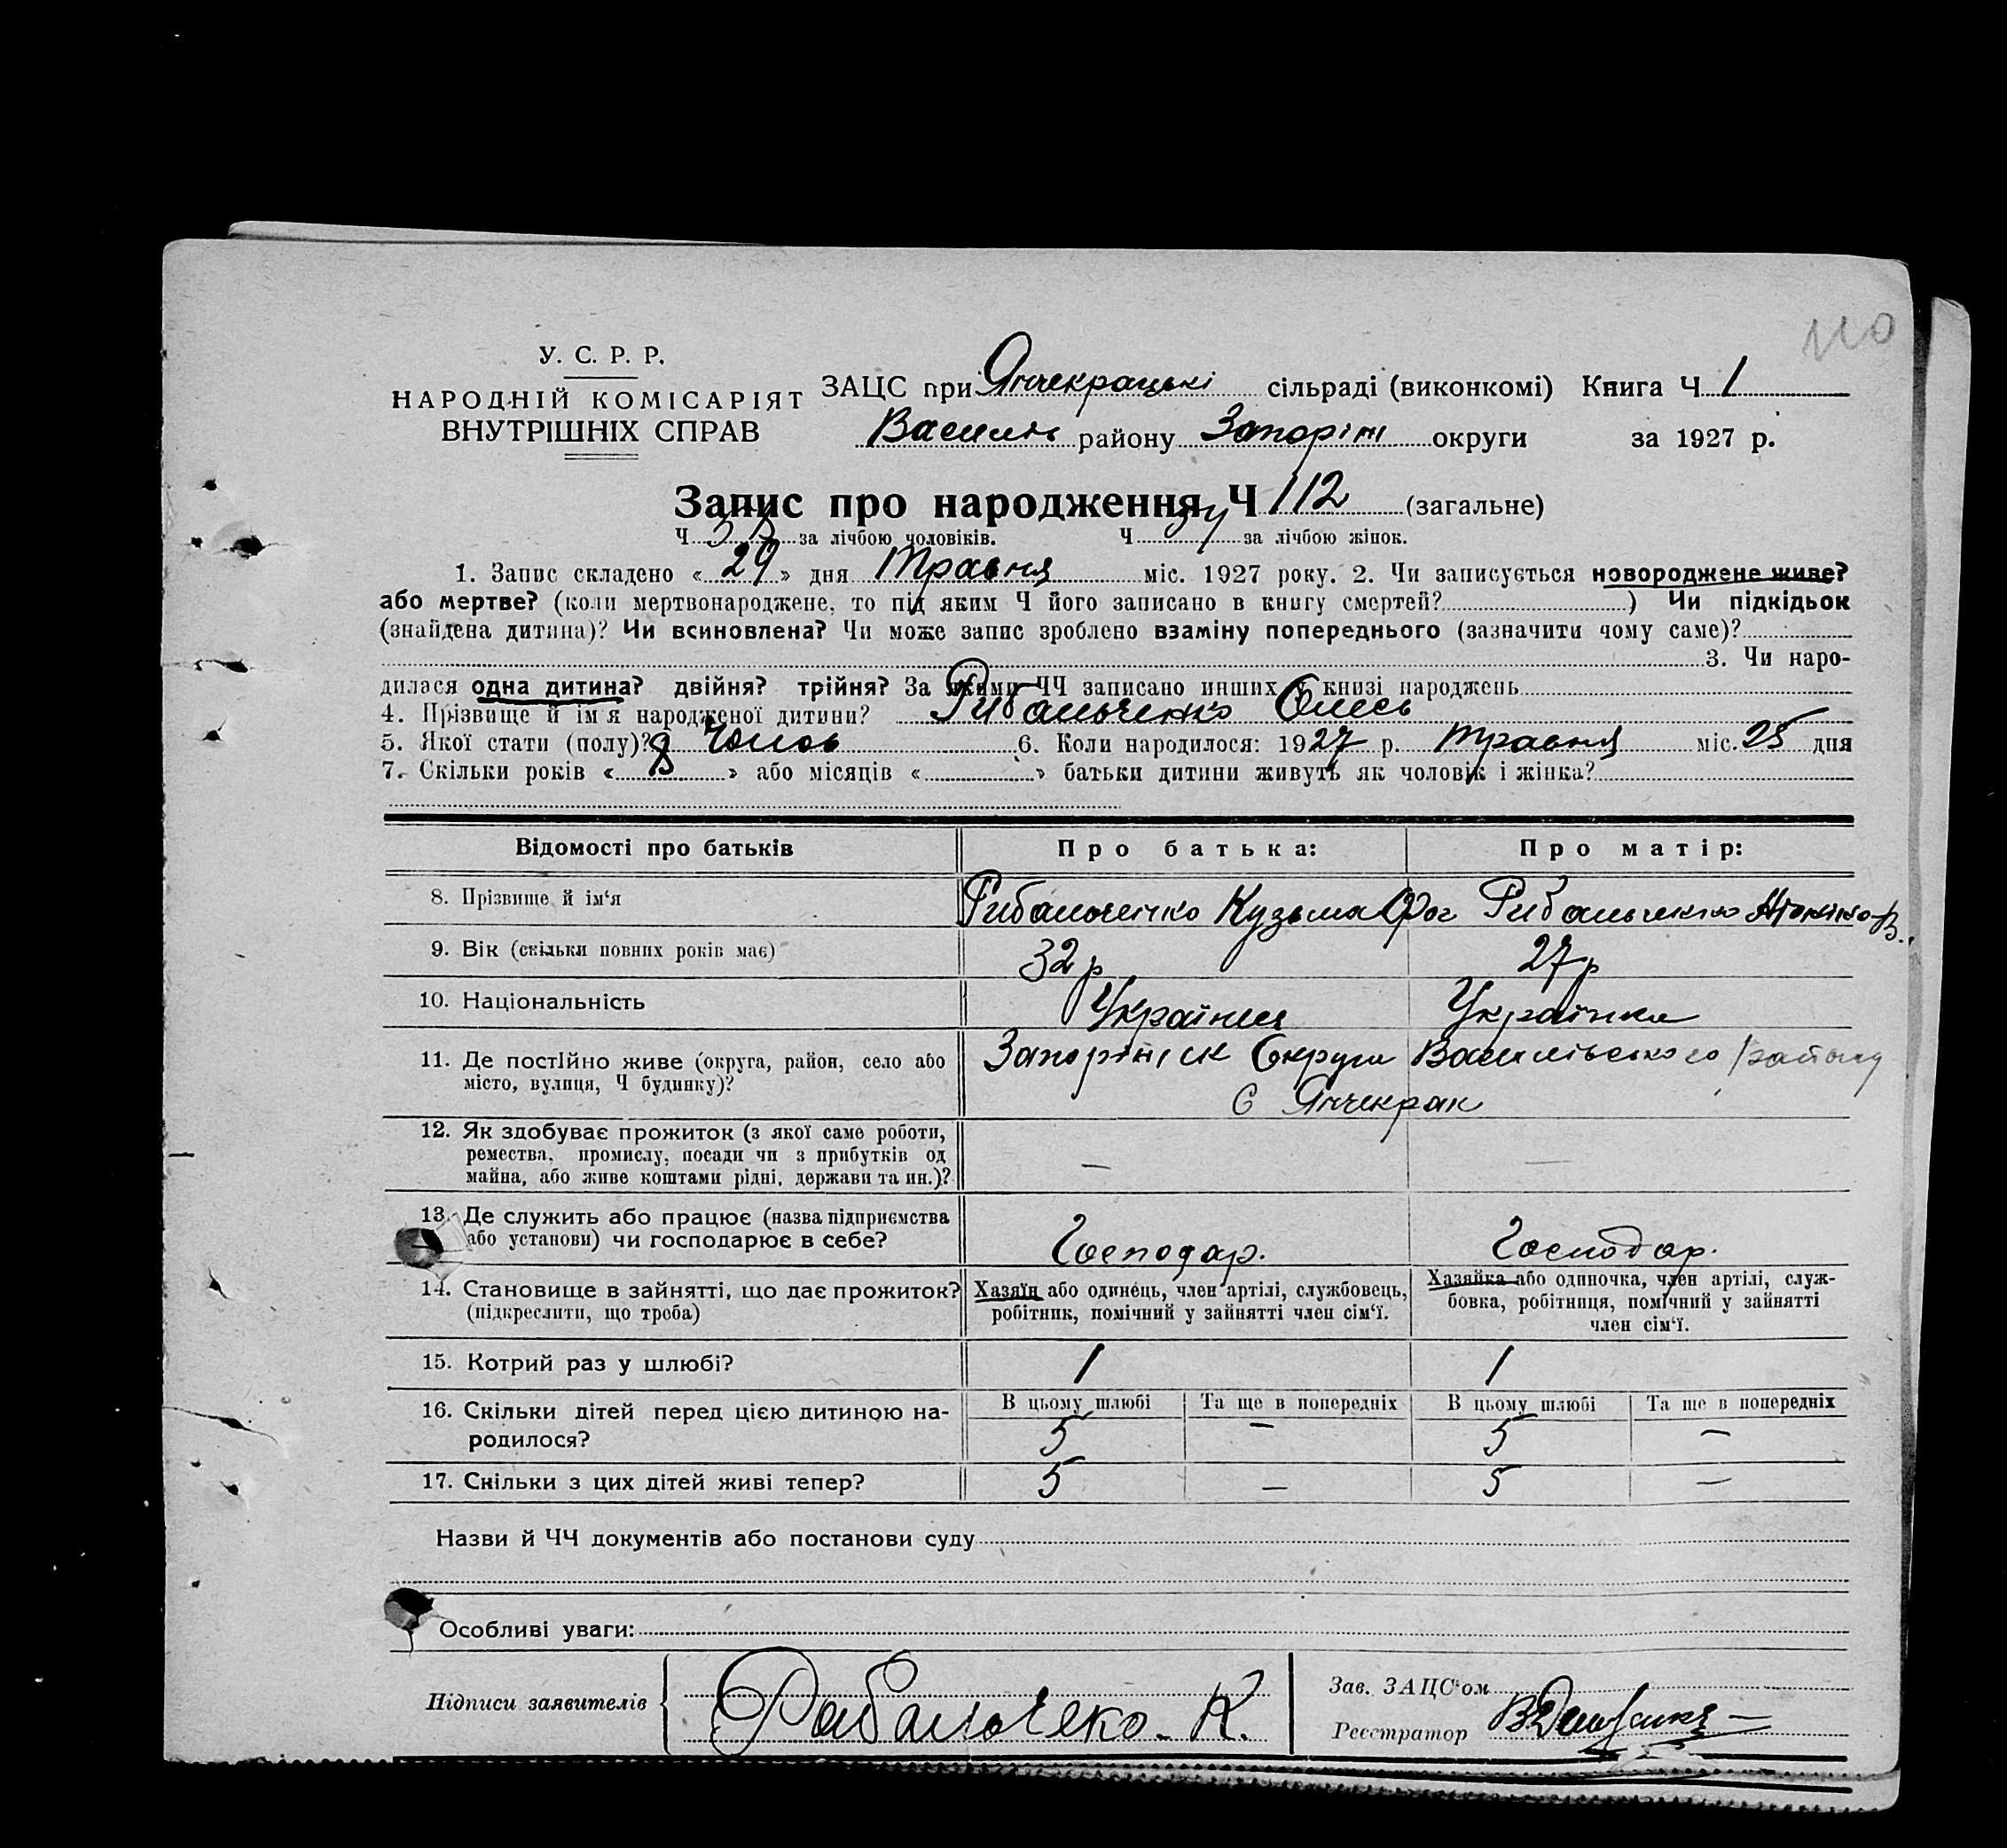 110
У. С. Р. Р.
НАРОДНІЙ КОМІСАРІЯТ
ВНУТРІШНІХ СПРАВ
ЗАЦС при Янчекрацькі сільраді (виконкомі) Книга Ч 1
Василь району Запоріж округи за 1927 р.
Запис про народження Ч 112 (загальне)
Ч за лічбою чоловіків. Ч за лічбою жінок.
1. Запис складено « 29 » дня Травня міс. 1927 року. 2. Чи записується новороджене живе?
або мертве? (коли мертвонароджене, то під яким Ч його записано в книгу смертей? ) Чи підкідьок
(знайдена дитина)? Чи всиновлена? Чи може запис зроблено взаміну попереднього (зазначити чому саме)?
3. Чи наро-
дилася одна дитина? двійня? трійня? За якими ЧЧ записано инших у книзі народжень
4. Прізвище й ім'я народженої дитини? Рибальченко Олесь
5. Якої стати (полу)? 6. Коли народилося: 1927 р. Травня міс. 25 дня
7. Скільки років « 8 » або місяців « » батьки дитини живуть як чоловік і жінка?
Відомості про батьків Про батька: Про матір:
8. Прізвище й ім'я Рибальченко Кузьма Рибальченко
9. Вік (скільки повних років має) 32 р 27 р
10. Національність Українец Українка
11. Де постІйно живе (округа, район, село або Запоріжіск Округи Василівського району
місто, вулиця, Ч будинку)? С Янчекрак
12. Як здобуває прожиток (з якої саме роботи,
ремества, промислу, посади чи з прибутків од — —
майна, або живе коштами рідні, держави та ин.)?
13. Де служить або працює (назва підприємства
або установи) чи господарює в себе? Господар. Господар.
14. Становище в зайнятті, що дає прожиток? Хазяїн або одинець, член артілі, службовець, Хазяйка або одиночка, член артілі, служ-
(підкреслити, що треба) робітник, помічний у зайнятті член сім'ї. бовка, робітниця, помічний у зайнятті
член сім'ї.
15. Котрий раз у шлюбі? 1 1
16. Скільки дітей перед цією дитиною на- В цьому шлюбі Та ще в попередніх В цьому шлюбі Та ще в попередніх
родилося? 5 — 5 —
17. Скільки з цих дітей живі тепер? 5 — 5 —
Назви й ЧЧ документів або постанови суду
Особливі уваги:
Підписи заявителів Рабальчеко. К.
Зав. ЗАЦС'ом
Реєстратор